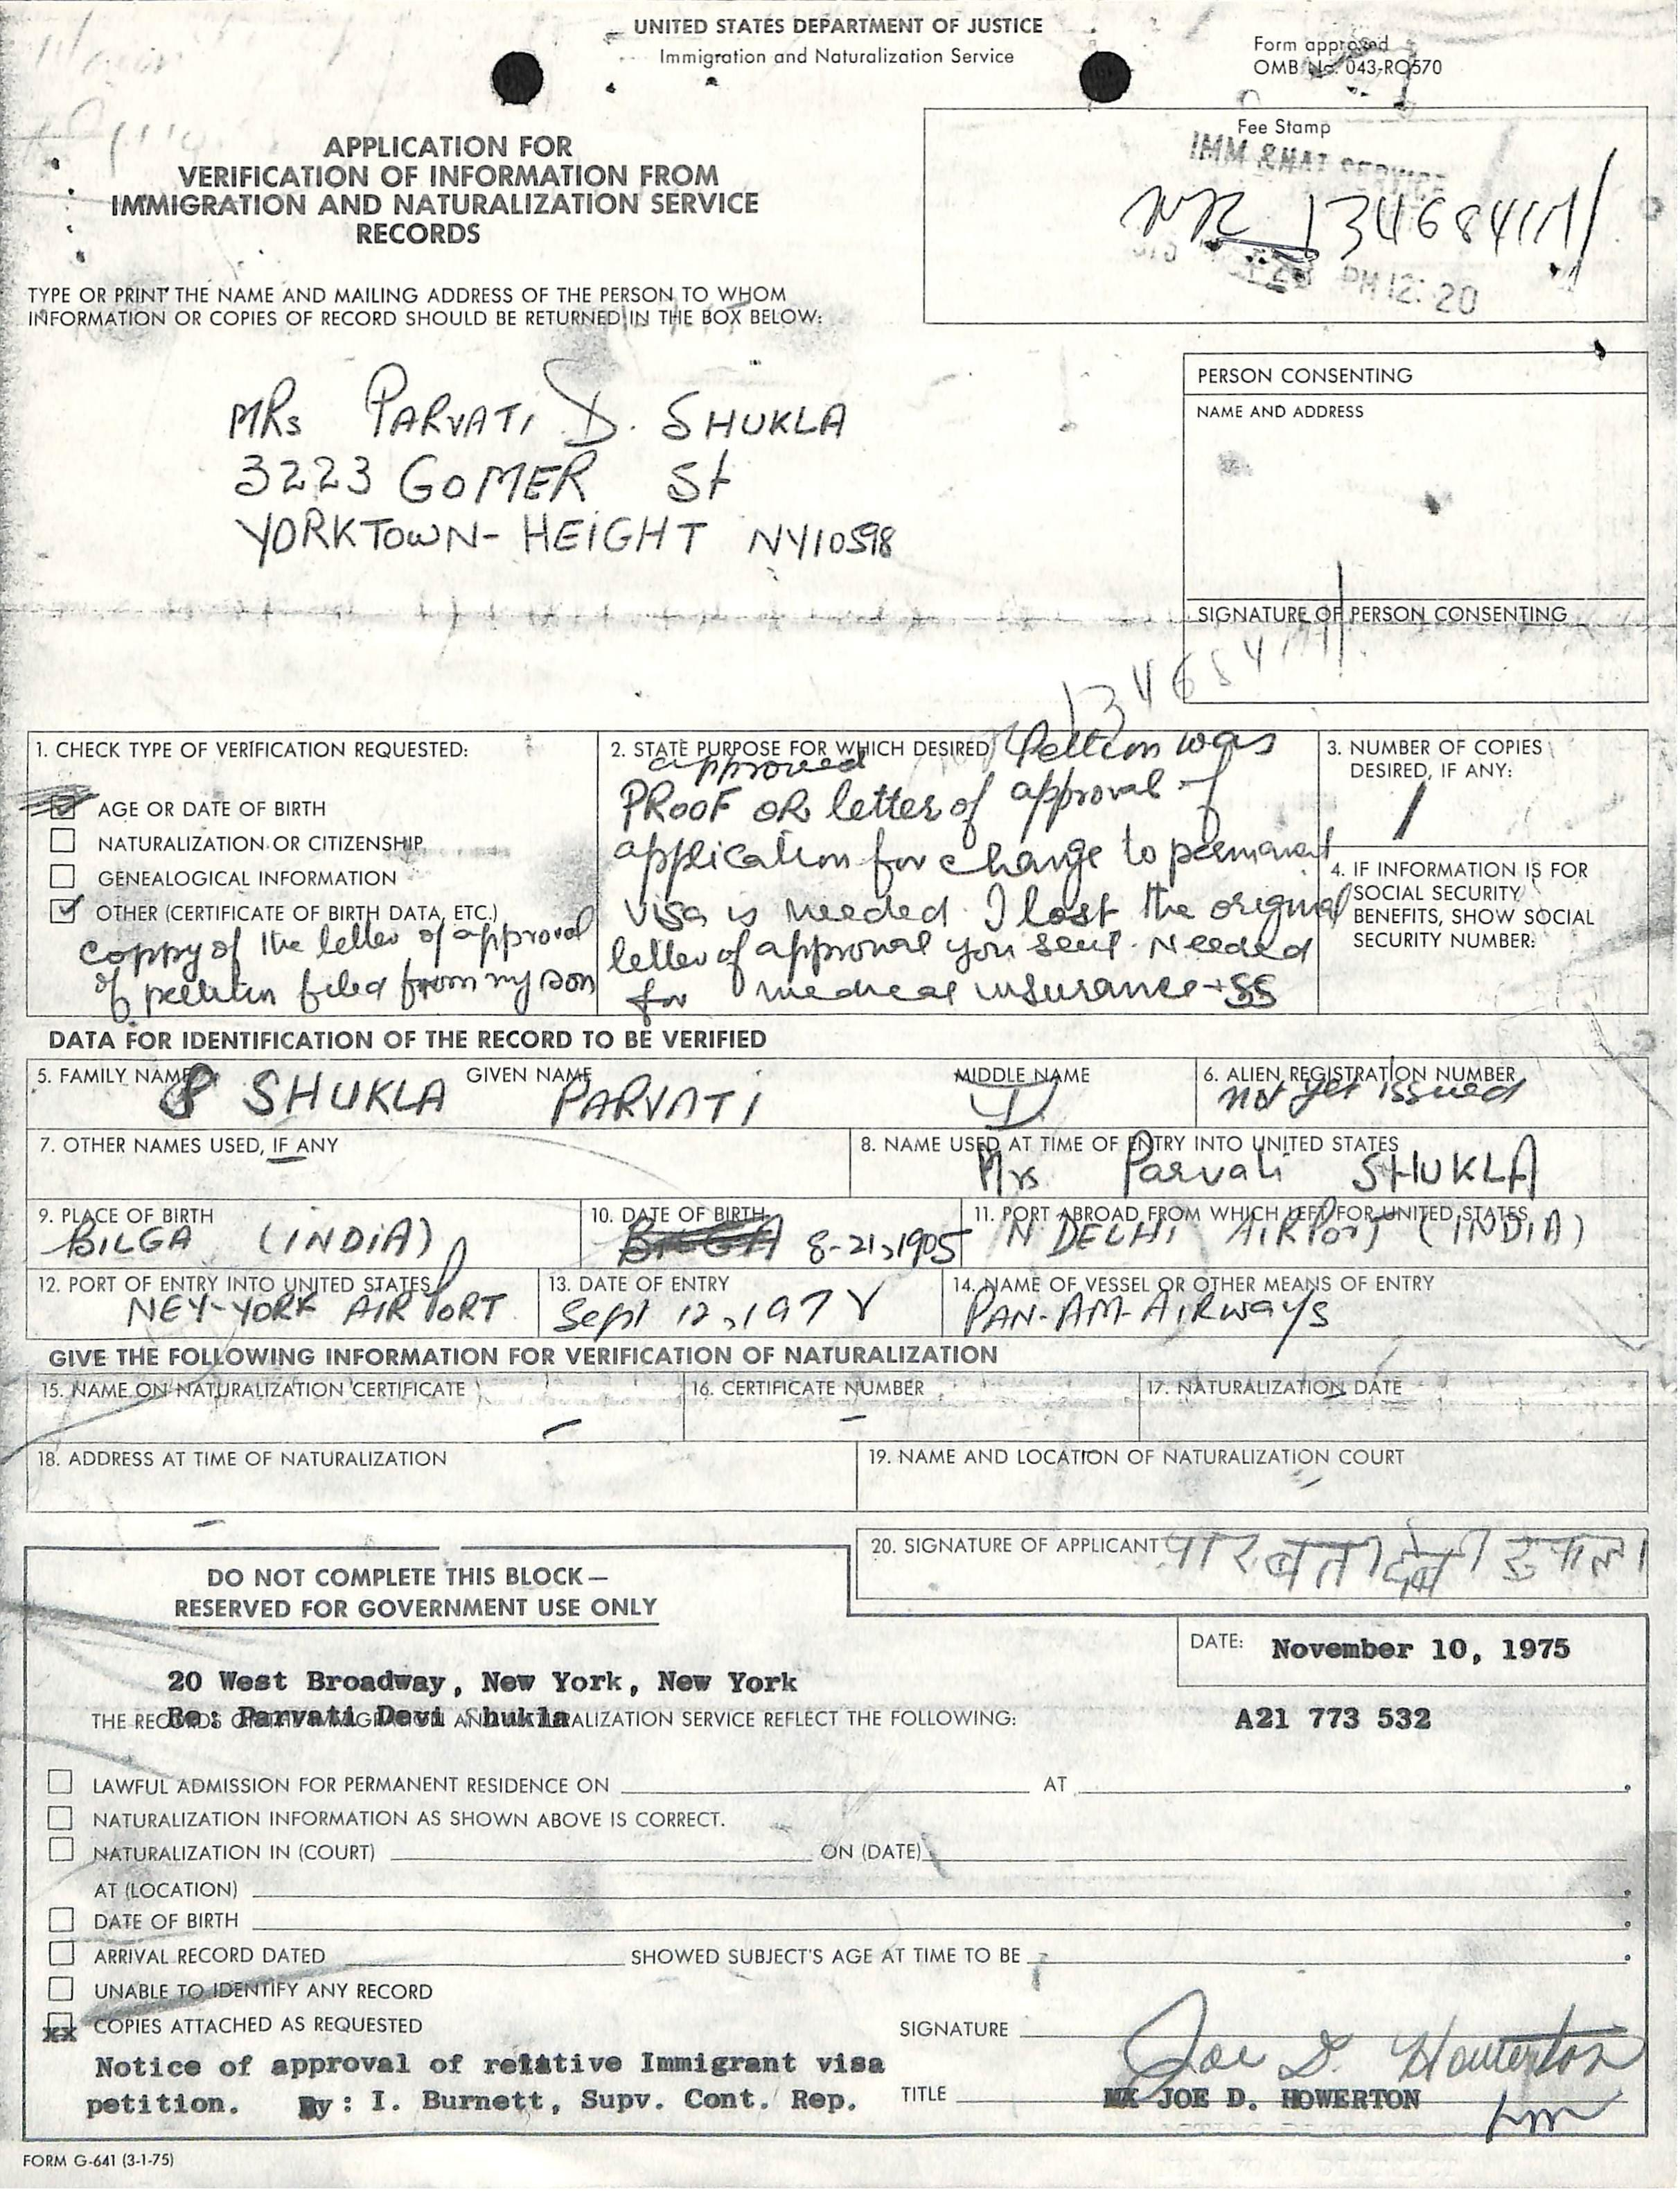 UNITED STATES DEPARTMENT OF JUSTICE
Immigration and Naturalization Service
Form approved
OMB No. 043-RO570
APPLICATION FOR
VERIFICATION OF INFORMATION FROM
IMMIGRATION AND NATURALIZATION SERVICE
RECORDS
Fee Stamp
IMM & NAT SERVICE
PM 12:20
TYPE OR PRINT THE NAME AND MAILING ADDRESS OF THE PERSON TO WHOM
INFORMATION OR COPIES OF RECORD SHOULD BE RETURNED IN THE BOX BELOW:
MRs PARVATI D. SHUKLA
3223 GOMER St
YORKTOWN- HEIGHT NY10598
PERSON CONSENTING
NAME AND ADDRESS
SIGNATURE OF PERSON CONSENTING
1. CHECK TYPE OF VERIFICATION REQUESTED:
AGE OR DATE OF BIRTH
NATURALIZATION OR CITIZENSHIP
GENEALOGICAL INFORMATION
OTHER (CERTIFICATE OF BIRTH DATA, ETC.)
coppy of the letter of approval
of petition filed from my son
2. STATE PURPOSE FOR WHICH DESIRED
Petition was
approved
PROOF OR letter of approval of
application for change to permanent
visa is needed. I lost the original
letter of approval you sent. Needed
for medical insurance + SS
3. NUMBER OF COPIES
DESIRED, IF ANY:
1
4. IF INFORMATION IS FOR
SOCIAL SECURITY
BENEFITS, SHOW SOCIAL
SECURITY NUMBER:
DATA FOR IDENTIFICATION OF THE RECORD TO BE VERIFIED
5. FAMILY NAME GIVEN NAME MIDDLE NAME
SHUKLA PARVATI D.
6. ALIEN REGISTRATION NUMBER
not yet issued
7. OTHER NAMES USED, IF ANY
8. NAME USED AT TIME OF ENTRY INTO UNITED STATES
Mrs Parvati SHUKLA
9. PLACE OF BIRTH
BILGA (INDIA)
10. DATE OF BIRTH
8-21,1905
11. PORT ABROAD FROM WHICH LEFT FOR UNITED STATES
N DELHI AIRPort (INDIA)
12. PORT OF ENTRY INTO UNITED STATES
NEY-YORK AIRPORT
13. DATE OF ENTRY
Sept 12,
14. NAME OF VESSEL OR OTHER MEANS OF ENTRY
PAN-AM-AIRways
GIVE THE FOLLOWING INFORMATION FOR VERIFICATION OF NATURALIZATION
15. NAME ON NATURALIZATION CERTIFICATE
16. CERTIFICATE NUMBER
17. NATURALIZATION DATE
18. ADDRESS AT TIME OF NATURALIZATION
19. NAME AND LOCATION OF NATURALIZATION COURT
20. SIGNATURE OF APPLICANT
DO NOT COMPLETE THIS BLOCK—
RESERVED FOR GOVERNMENT USE ONLY
DATE: November 10, 1975
20 West Broadway, New York, New York
Re: Parvati Devi Shukla
THE RECORDS OF THE IMMIGRATION AND NATURALIZATION SERVICE REFLECT THE FOLLOWING:
A21 773 532
LAWFUL ADMISSION FOR PERMANENT RESIDENCE ON AT
NATURALIZATION INFORMATION AS SHOWN ABOVE IS CORRECT.
NATURALIZATION IN (COURT) ON (DATE)
AT (LOCATION)
DATE OF BIRTH
ARRIVAL RECORD DATED SHOWED SUBJECT'S AGE AT TIME TO BE
UNABLE TO IDENTIFY ANY RECORD
xx COPIES ATTACHED AS REQUESTED
SIGNATURE Joe D. Howerton
Notice of approval of relative Immigrant visa
petition. By: I. Burnett, Supv. Cont. Rep.
TITLE JOE D. HOWERTON
FORM G-641 (3-1-75)